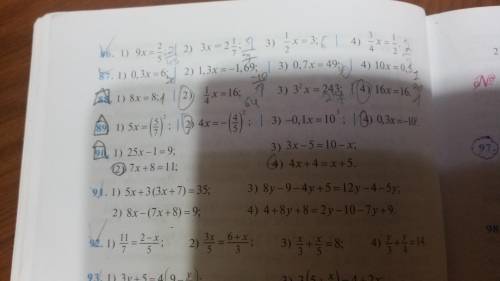 86. 1) 9x = 2/5; 2) 3x = 2 1/7; 3) 1/2 x = 3; 4) 3/4 x = 1/2;
87. 1) 0,3x = 6; 2) 1,3x = -1,69; 3) 0,7x = 49; 4) 10x = 0,5
88. 1) 8x = 8; 2) 1/4 x = 16; 3) 3³x = 243; 4) 16x = 16
89. 1) 5x = (5/7)²; 2) 4x = -(4/5)²; 3) -0,1x = 10³; 4) 0,3x = -10
90. 1) 25x - 1 = 9; 3) 3x - 5 = 10 - x;
2) 7x + 8 = 11; 4) 4x + 4 = x + 5.
91. 1) 5x + 3(3x + 7) = 35; 3) 8y - 9 - 4y + 5 = 12y - 4 - 5y;
2) 8x - (7x + 8) = 9; 4) 4 + 8y + 8 = 2y - 10 - 7y + 9.
92. 1) 11/7 = (2 - x)/5; 2) 3x/5 = (6 + x)/3; 3) x/3 + x/5 = 8; 4) y/3 + y/4 = 14
93. 1) 3y + 5 = 4(9 - y
97.
98